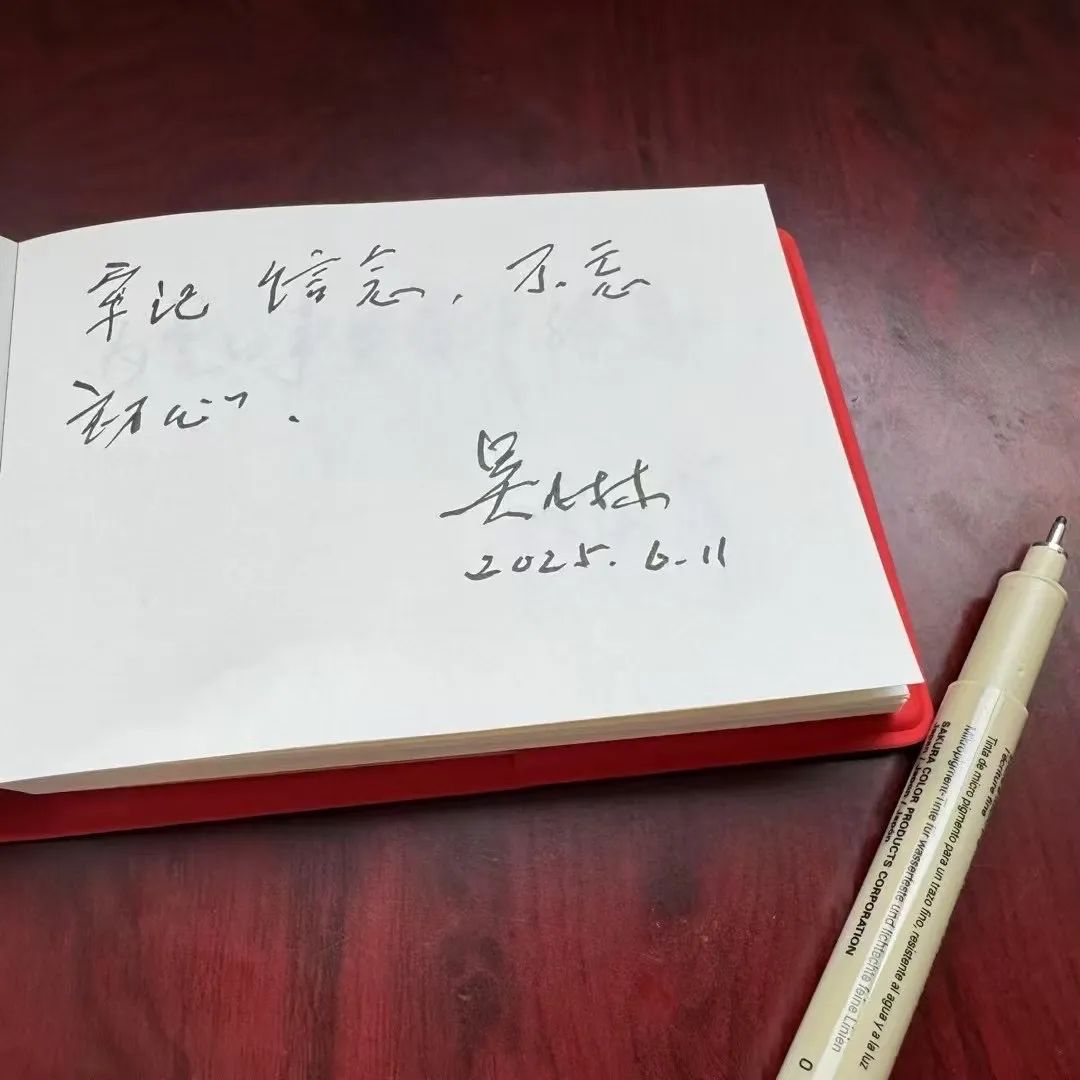 牢记信念，不忘
初心.
吴
2025.6.11
Tinta de micro pigmento para un trazo fino, resistente al agua y a la luz
Mikropigment-Tinte für wasserfeste und lichtechte feine Linien
SAKURA COLOR PRODUCTS CORPORATION